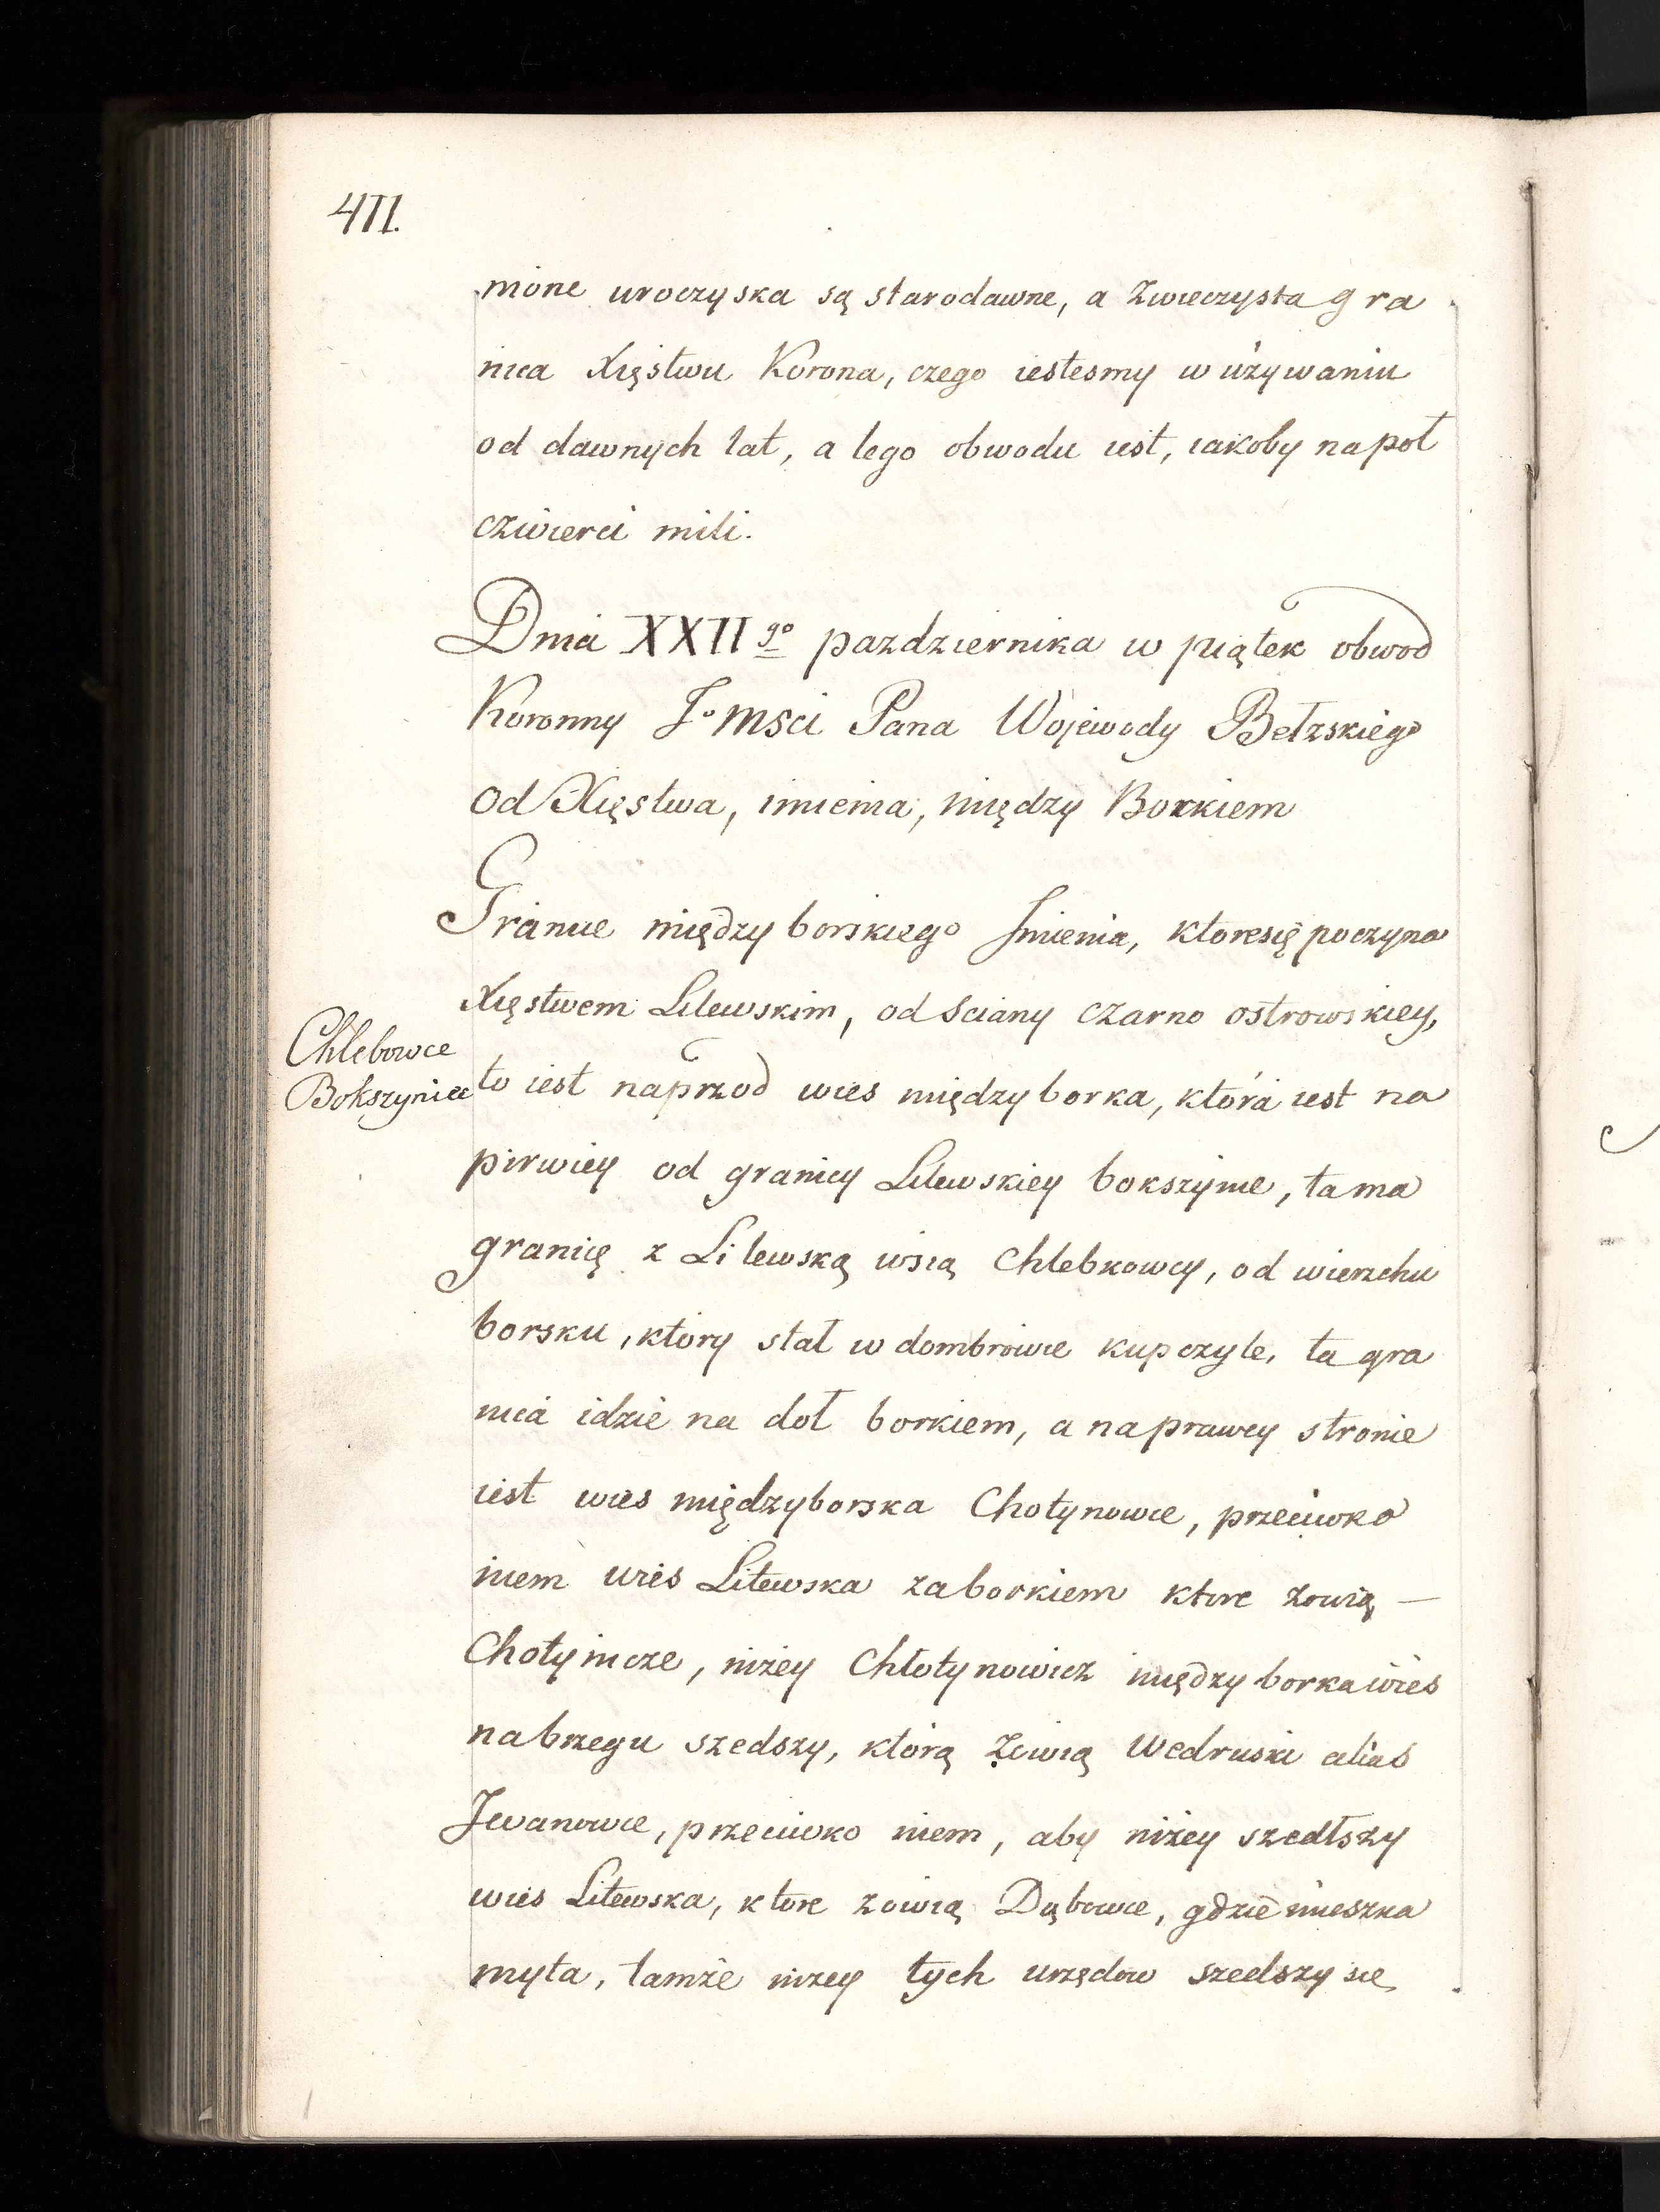 411.
nione uroczyska są starodawne, a zwieczysta gra
nica Xięstwu Korona, czego iestesmy w używaniu
od dawnych lat, a tego obwodu iest, iakoby na poł
czwierci mili.
Dnia XXII go pazdziernika w piątek obwod
Koronny Jo msci Pana Wojewody Bełzskiego
od Xięstwa, imienia, między Borkiem
Granice między borskiego Imienia, ktore się poczyna
Xięstwem Litewskim, od sciany czarno ostrowskiey,
Chlebowce
Bokszynice
to iest naprzod wies między borka, ktora iest na
pirwiey od granicy Litewskiey bokszynie, ta ma
granicę z Litewską wsią Chlebkowcy, od wierzchu
borsku, ktory stał w dombrowie kupczyle, ta gra
nica idzie na doł borkiem, a na prawey stronie
iest wies międzyborska Chotynowce, przeciwko
niem wies Litewska za borkiem ktore zowią —
Chotynicze, niżey Chłotynowicz między borka wies
na brzegu szedszy, ktorą zowią Wedruski alias
Iwanowce, przeciwko niem, aby niżey szedłszy
wies Litewska, ktore zowią Dąbowce, gdzie mieszka
myta, tamże niżey tych urzędow szedszy się